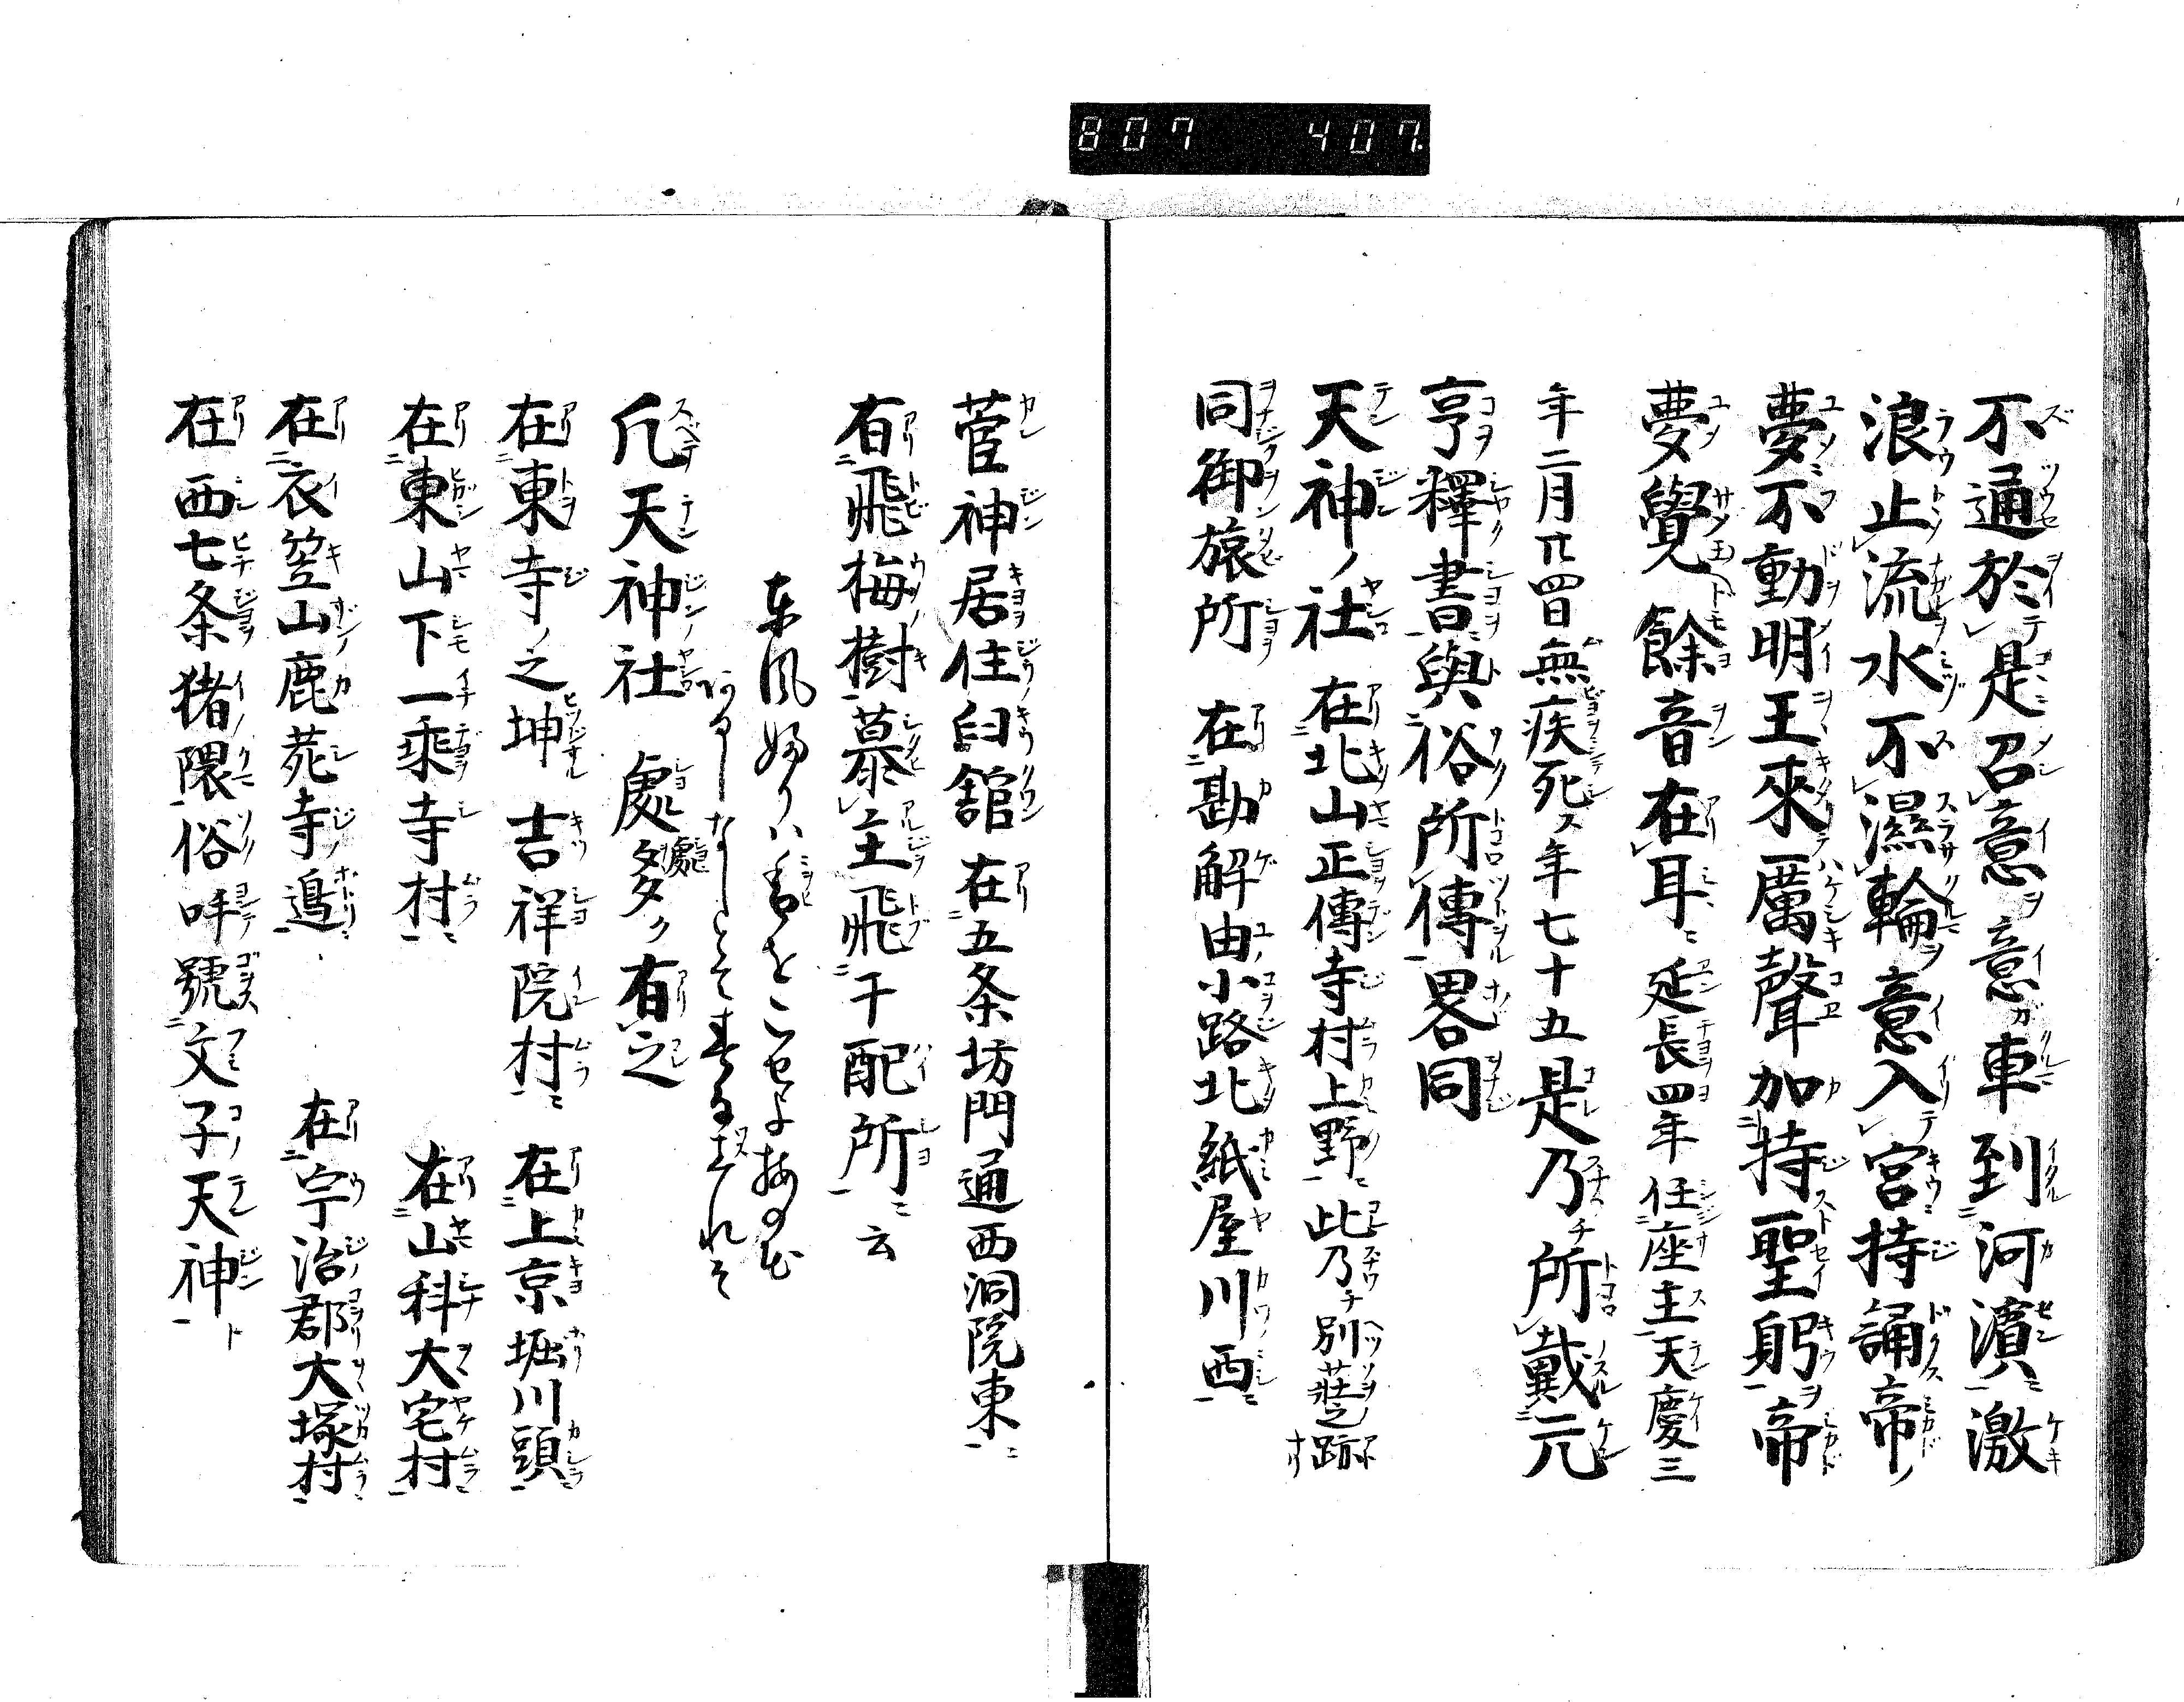 807 407.
不通於是召意意ガ車到河濵激
浪止流水不濕輪意入宮持誦帝ノ
夢不動明王來厲聲加持聖躬帝
夢覺餘音在耳延長四年任座主天慶三
年二月廿四日無疾死年七十五是乃所戴元
亨釋書與俗所傳畧同
天神ノ社 在北山正傳寺村上野此乃チ別莊之跡ナリ
同御旅所 在勘解由小路北紙屋川西
菅神居住舘 在五条坊門通西洞院東
有飛梅樹慕主飛干配所云
東風ふかは匂ひをこせよ梅の花
あるしなしとて春なわすれそ
凡天神社 處多ク有之
在東寺之坤吉祥院村 在上京堀川頭
在東山下一乘寺村 在山科大宅村
在衣笠山鹿苑寺邉 在宇治郡大塚村
在西七条猪隈俗呼號文子天神